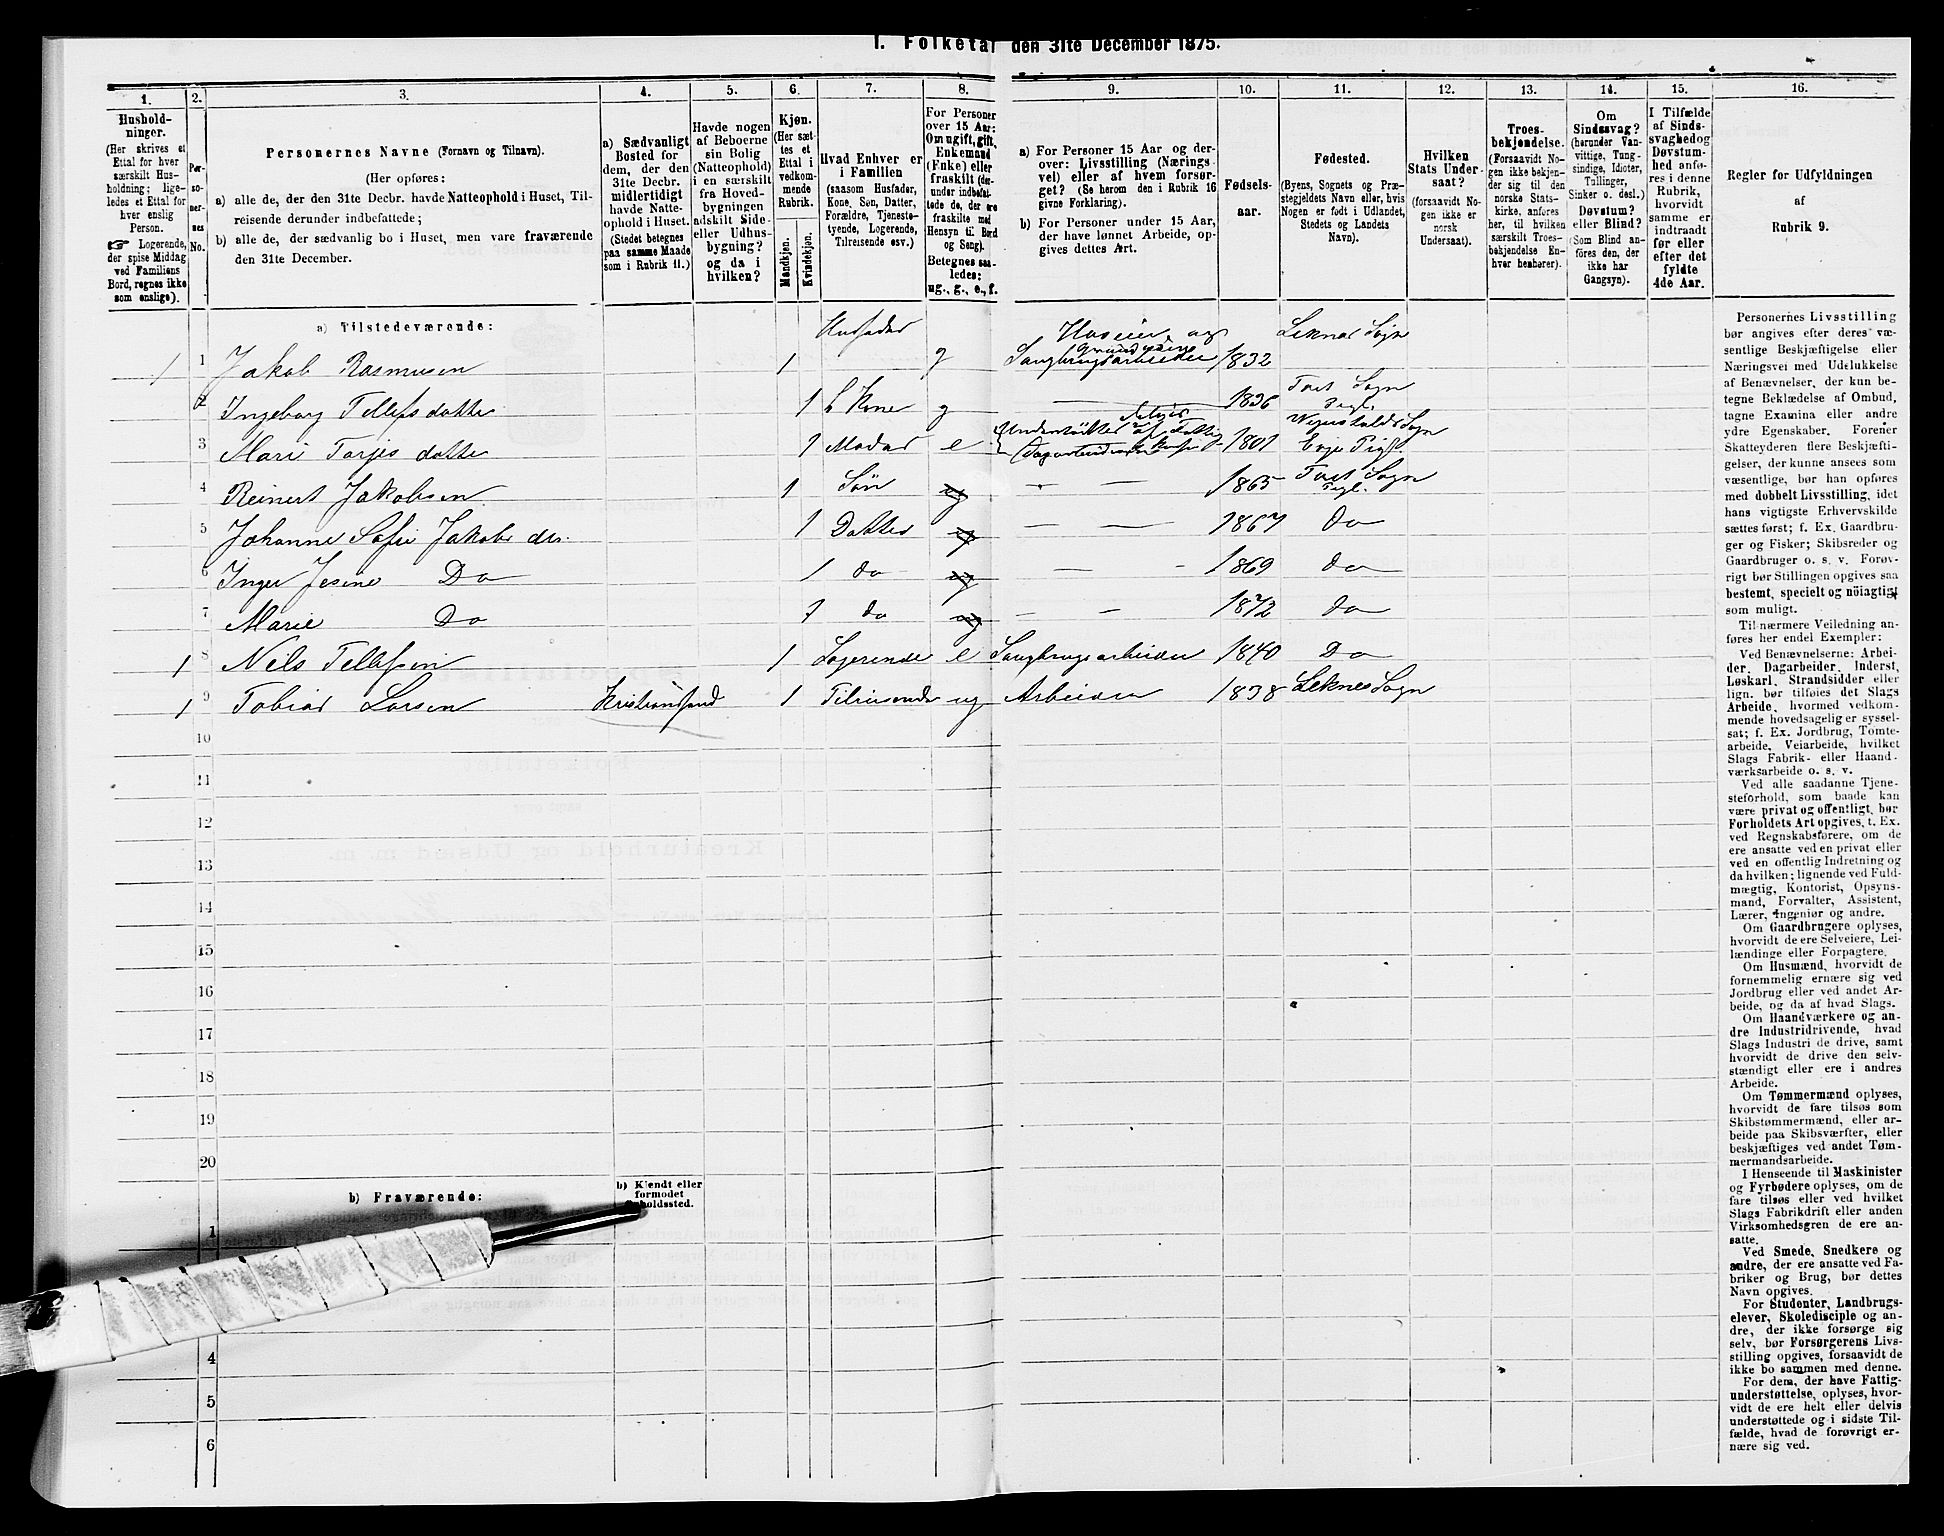 1. Folketal den 31te December 1875.
1. 2. 3. 4. 5. 6. 7. 8. 9. 10. 11. 12. 13. 14. 15. 16.
Hushold-
ninger.
(Her skrives et
Ettal for hver
særskilt Hus-
holdning; lige-
ledes et Ettal for
hver enslig
Person.
☞ Logerende,
der spise Middag
ved Familiens
Bord, regnes ikke
som enslige).
Per-
so-
ner-
nes
No.
Personernes Navne (Fornavn og Tilnavn).
(Her opføres:
a) alle de, der den 31te Decbr. havde Natteophold i Huset, Til-
reisende derunder indbefattede;
b) alle de, der sædvanlig bo i Huset, men vare fraværende
den 31te December.
a) Sædvanligt
Bosted for
dem, der den
31te Decbr.
midlertidigt
havde Natte-
ophold i Huset.
(Stedet betegnes
paa samme Maade
som i Rubrik 11.)
Havde nogen
af Beboerne
sin Bolig
(Natteophold)
i en særskilt
fra Hoved-
bygningen
adskilt Side-
eller Udhus-
bygning?
og da i
hvilken?
Kjøn.
(Her sæt-
tes et
Ettal i
vedkom-
mende
Rubrik.
Mandkjøn.
Kvindekjøn.
Hvad Enhver er
i Familien
(saasom Husfader,
Kone, Søn, Datter,
Forældre, Tjeneste-
tyende, Logerende,
Tilreisende osv.)
For Personer
over 15 Aar:
Om ugift, gift,
Enkemand
(Enke) eller
fraskilt (der-
under indbefat-
tede de, der ere
fraskilte med
Hensyn til Bord
og Seng).
Betegnes saa-
ledes:
ug., g., e., f.
a) For Personer 15 Aar og der-
over: Livsstilling (Nærings-
vei) eller af hvem forsør-
get? (Se herom den i Rubrik 16
givne Forklaring).
b) For Personer under 15 Aar,
der have lønnet Arbeide, op-
gives dettes Art.
Fødsels-
aar.
Fødested.
(Byens, Sognets og Præ-
stegjeldets Navn eller, hvis
Nogen er født i Udlandet,
Stedets og Landets
Navn).
Hvilken
Stats Under-
saat?
(forsaavidt No-
gen ikke er
norsk
Undersaat).
Troes-
bekjendelse.
(Forsaavidt No-
gen ikke bekjen-
der sig til den
norske Stats-
kirke, anføres
her, til hvilken
særskilt Troes-
bekjendelse En-
hver henhører).
Om
Sindssvag?
(herunder Van-
vittige, Tung-
sindige, Idioter,
Tullinger,
Sinker o. desl.)
Døvstum?
eller Blind?
(Som Blind an-
føres den, der
ikke har
Gangsyn).
I Tilfælde
af Sinds-
svaghed og
Døvstum-
hed anfø-
res i denne
Rubrik,
hvorvidt
samme er
indtraadt
før eller
efter det
fyldte
4de Aar.
Regler for Udfyldningen
af
Rubrik 9.
a) Tilstedeværende:
1 1 Jakob Rasmusen 1 Husfader g Huseier og Grundeier Saugbrugsarbeider 1832 Leknes Sogn
2 Ingeborg Tellefsdatter 1 Kone g 1836 Tveit Sogn
3 Mari Torjesdatter 1 Moder e Understöttet af Fattig 1801 Sogn
4 Reinert Jakobsen 1 Søn ug 1865 Tveit Sogn
5 Johanne Sofie Jakobs dr. 1 Datter ug 1867 do
6 Inger Jesine Do 1 do ug 1869 do
7 Marie Do 1 do ug 1872 do
1 8 Nils Tellefsen 1 Logerende e Saugbrugsarbeider 1840 Do
1 9 Tobias Larsen Kristiansand 1 Tilreisende ug Arbeider 1838 Leknes Sogn
10
11
12
13
14
15
16
17
18
19
20
b) Fraværende:
b) Kjendt eller
formodet
Opholdssted.
1
4
5
6
Personernes Livsstilling
bør angives efter deres væ-
sentlige Beskjæftigelse eller
Næringsvei med Udelukkelse
af Benævnelser, der kun be-
tegne Beklædelse af Ombud,
tagne Examina eller andre
ydre Egenskaber. Forener
Skatteyderen flere Beskjæfti-
gelser, der kunne ansees som
væsentlige, bør han opføres
med dobbelt Livsstilling, idet
hans vigtigste Erhvervskilde
sættes først; f. Ex. Gaardbru-
ger og Fisker; Skibsreder og
Gaardbruger o. s. v. Forøv-
rigt bør Stillingen opgives saa
bestemt, specielt og nöiagtigt
som muligt.
Til nærmere Veiledning an-
føres her endel Exempler:
Ved Benævnelserne: Arbei-
der, Dagarbeider, Inderst,
Løskarl, Strandsidder eller
lign. bør tilføies det Slags
Arbeide, hvormed vedkom-
mende hovedsagelig er syssel-
sat; f. Ex. Jordbrug, Tomte-
arbeide, Veiarbeide, hvilket
Slags Fabrik- eller Haand-
værksarbeide o. s. v.
Ved alle saadanne Tjene-
steforhold, som baade kan
være privat og offentligt, bør
Forholdets Art opgives, t. Ex.
ved Regnskabsførere, om de
ere ansatte ved en privat eller
ved en offentlig Indretning og
da hvilken; lignende ved Fuld-
mægtig, Kontorist, Opsyns-
mand, Forvalter, Assistent,
Lærer, Ingeniør og andre.
Om Gaardbrugere oplyses,
hvorvidt de ere Selveiere, Lei-
lændinge eller Forpagtere.
Om Husmænd, hvorvidt de
fornemmelig ernære sig ved
Jordbrug eller ved andet Ar-
beide, og da af hvad Slags.
Om Haandværkere og an-
dre Industridrivende, hvad
Slags Industri de drive, samt
hvorvidt de drive den selv-
stændigt eller ere i andres
Arbeide.
Om Tømmermænd oplyses,
hvorvidt de fare tilsøs som
Skibstømmermænd, eller ar-
beide paa Skibsværfter, eller
beskjæftiges ved andet Tøm-
mermandsarbeide.
I Henseende til Maskinister
og Fyrbødere oplyses, om de
fare tilsøs eller ved hvilket
Slags Fabrikdrift eller anden
Virksomhedsgren de ere an-
satte.
Ved Smede, Snedkere og
andre, der ere ansatte ved Fa-
briker og Brug, bør dettes
Navn opgives.
For Studenter, Landbrugs-
elever, Skoledisciple og an-
dre, der ikke forsørge sig
selv, bør Forsørgerens Livs-
stilling opgives, forsaavidt de
ikke bo sammen med denne.
For dem, der have Fattig-
understøttelse, oplyses, hvor-
vidt de ere helt eller delvis
understøttede og i sidste Til-
fælde, hvad de forøvrigt er-
nære sig ved.